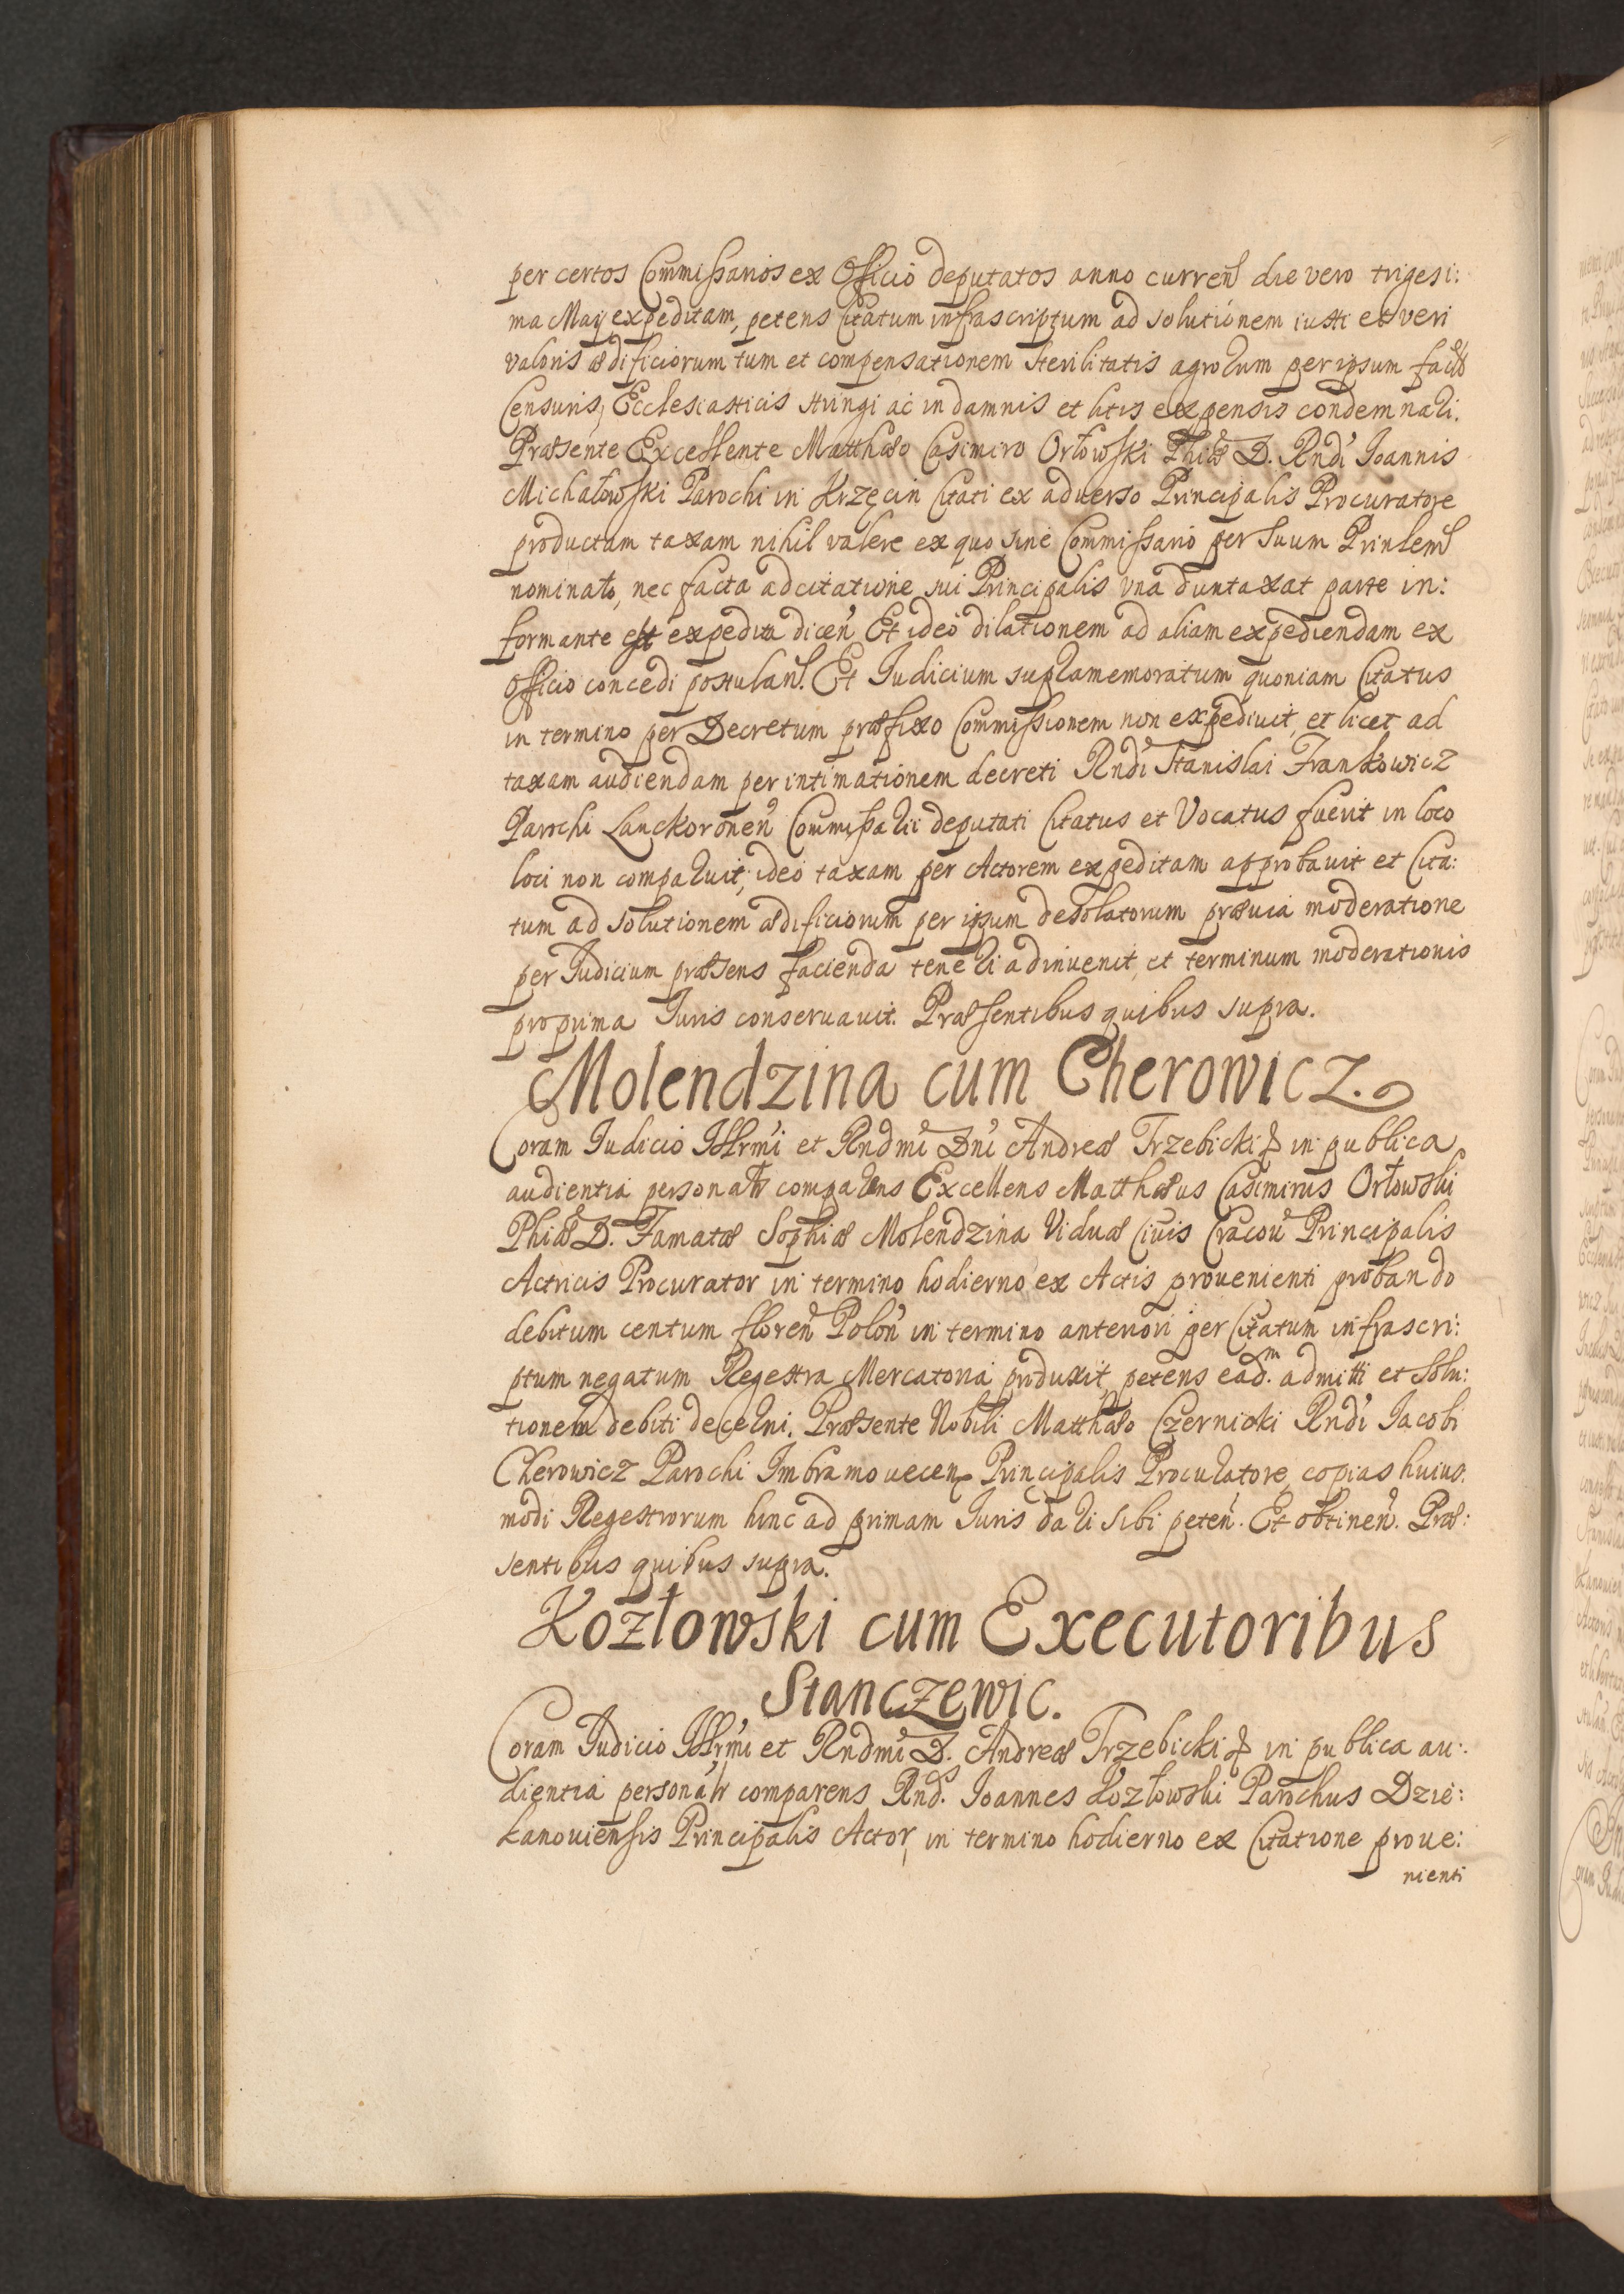 per certos Commissarios ex Officio deputatos anno curren die vero trigesi:
ma Maij expeditam, petens Citatum infrascriptum ad solutionem iusti et veri
valoris ædificiorum tum et compensationem sterilitatis agrorum per ipsum fact
Censuris Ecclesiasticis stringi ac in damnis et litis expensis condemnari.
Præsente Excellente Matthæo Casimiro Orłowski Phiæ D. Rndi Ioannis
Michałowski Parochi in Krzęcin Citati ex adverso Principalis Procuratore
productam taxam nihil valere ex quo sine Commissario per suum Prinlem
nominato, nec facta adcitatione sui Principalis vna duntaxat parte in:
formante est expedita dicen Et ideo dilationem ad aliam expediendam ex
officio concedi postulan. Et Iudicium supramemoratum quoniam Citatus
in termino per Decretum præfixo Commissionem non expediuit, et licet ad
taxam audiendam per intimationem decreti Rndi Stanislai Frankowicz
Parochi Lanckoronen Commissarii deputati Citatus et Vocatus fuerit in loco
loci non comparuit, ideo taxam per Actorem expeditam approbauit et Cita:
tum ad solutionem ædificiorum per ipsum desolatorum præuia moderatione
per Iudicium præsens facienda teneri adinuenit, et terminum moderationis
pro prima Iuris conseruauit. Præsentibus quibus supra.
Molendzina cum Cherowicz.
Coram Iudicio Illrmi et Rndmi Dni Andreæ Trzebicki in publica
audientia personalr comparens Excellens Matthæus Casimirus Orłowski
Phiæ D. Famatæ Sophiæ Molendzina Viduæ Ciuis Cracou Principalis
Actricis Procurator in termino hodierno ex Actis prouenienti probando
debitum centum floren Polon in termino anteriori per Citatum infrascri:
ptum negatum Regestra Mercatoria produxit, petens ead.m admitti et solu:
tionem debiti decerni. Præsente Nobili Matthæo Czernicki Rndi Iacobi
Cherowicz Parochi Imbramouecen Principalis Procuratore, copias huius:
modi Regestrorum hinc ad primam Iuris dari sibi peten. Et obtinen. Præ:
sentibus quibus supra.
Kozłowski cum Executoribus
Stanczewic.
Coram Iudicio Illrmi et Rndmi D. Andreæ Trzebicki in publica au:
dientia personalr comparens Rnd.s Ioannes Kozłowski Parochus Dzie:
kanouiensis Principalis Actor, in termino hodierno ex Citatione proue:
nienti